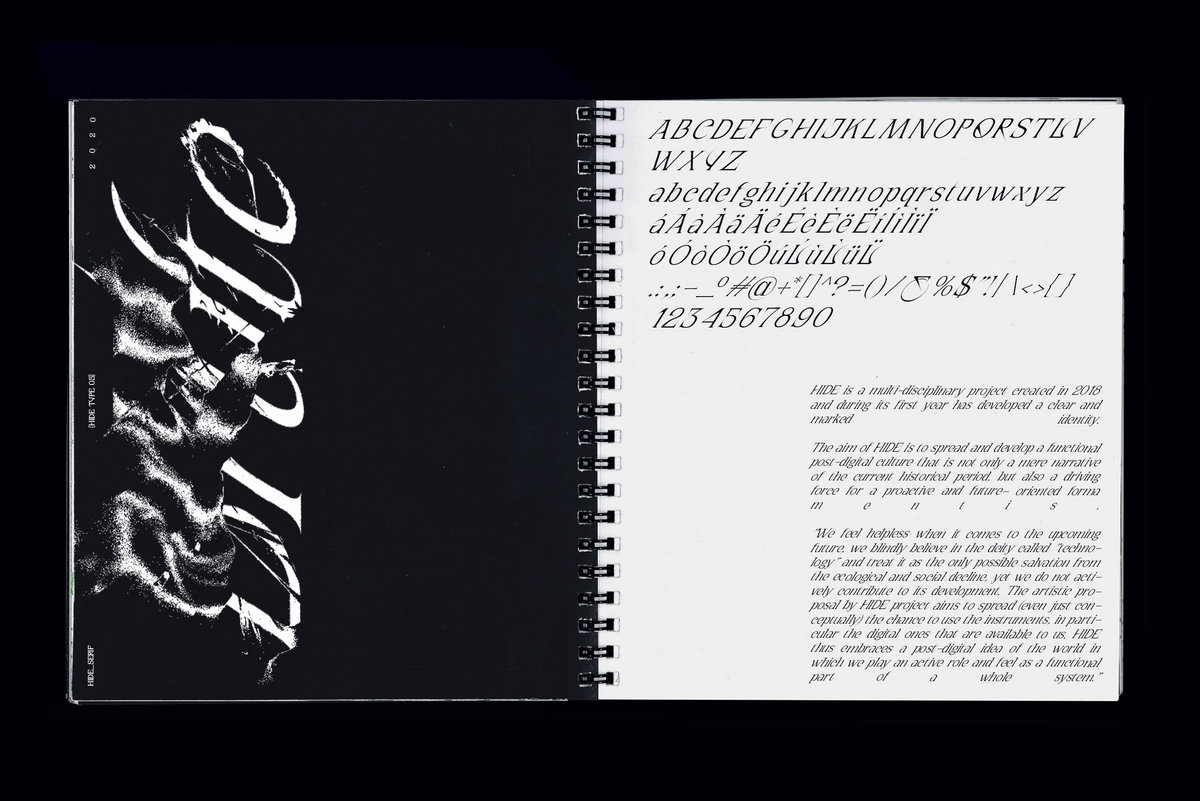 2020
[HIDE TYPE 05]
HIDE_SERIF
ABCDEFGHIJKLMNOPQRSTUV
WXYZ
abcdefghijklmnopqrstuvwxyz
áÁàÀäÄéÉèÈëËíÍìÌïÏ
óÓòÒöÖúÚùÙüÜ
.:,;-_º#@+*[]^?=()/%$"'!|\<>{}
1234567890
HIDE is a multi-disciplinary project created in 2018
and during its first year has developed a clear and
marked identity.
The aim of HIDE is to spread and develop a functional
post-digital culture that is not only a mere narrative
of the current historical period, but also a driving
force for a proactive and future- oriented forma
mentis.
"We feel helpless when it comes to the upcoming
future, we blindly believe in the deity called "techno-
logy" and treat it as the only possible salvation from
the ecological and social decline, yet we do not acti-
vely contribute to its development. The artistic pro-
posal by HIDE project aims to spread (even just con-
ceptually) the chance to use the instruments, in parti-
cular the digital ones that are available to us. HIDE
thus embraces a post-digital idea of the world in
which we play an active role and feel as a functional
part of a whole system."